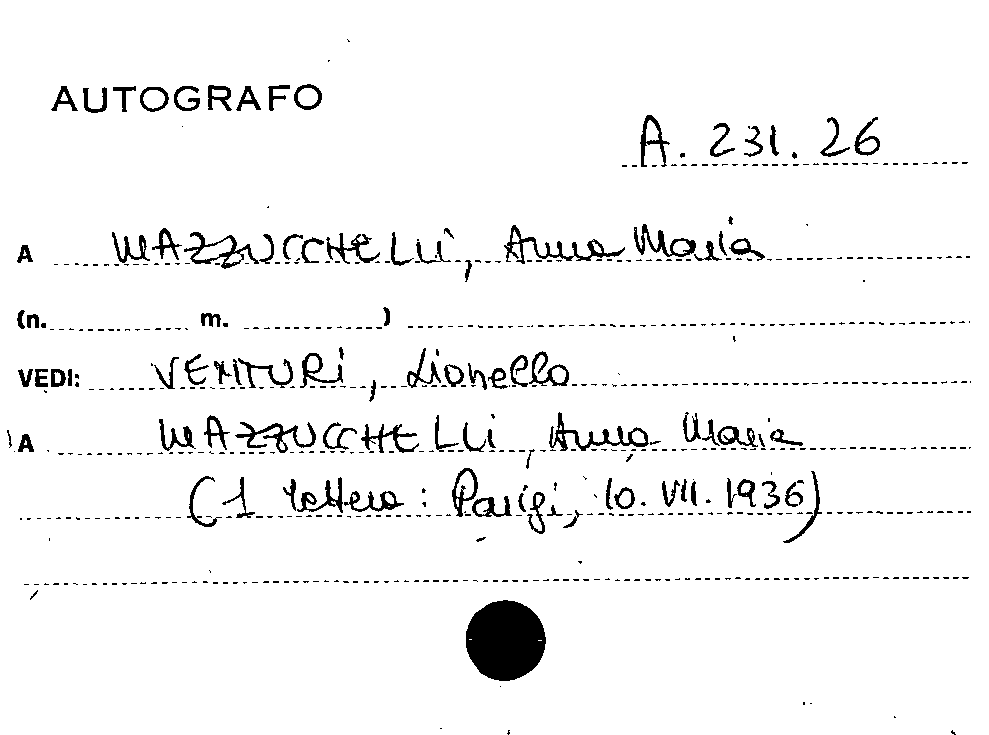 AUTOGRAFO
A. 231. 26
A MAZZUCCHELLI, Anna Maria
(n. m. )
VEDI: VENTURI, Lionello
A MAZZUCCHELLI, Anna Maria
(1 lettera: Parigi, 10. VII. 1936)